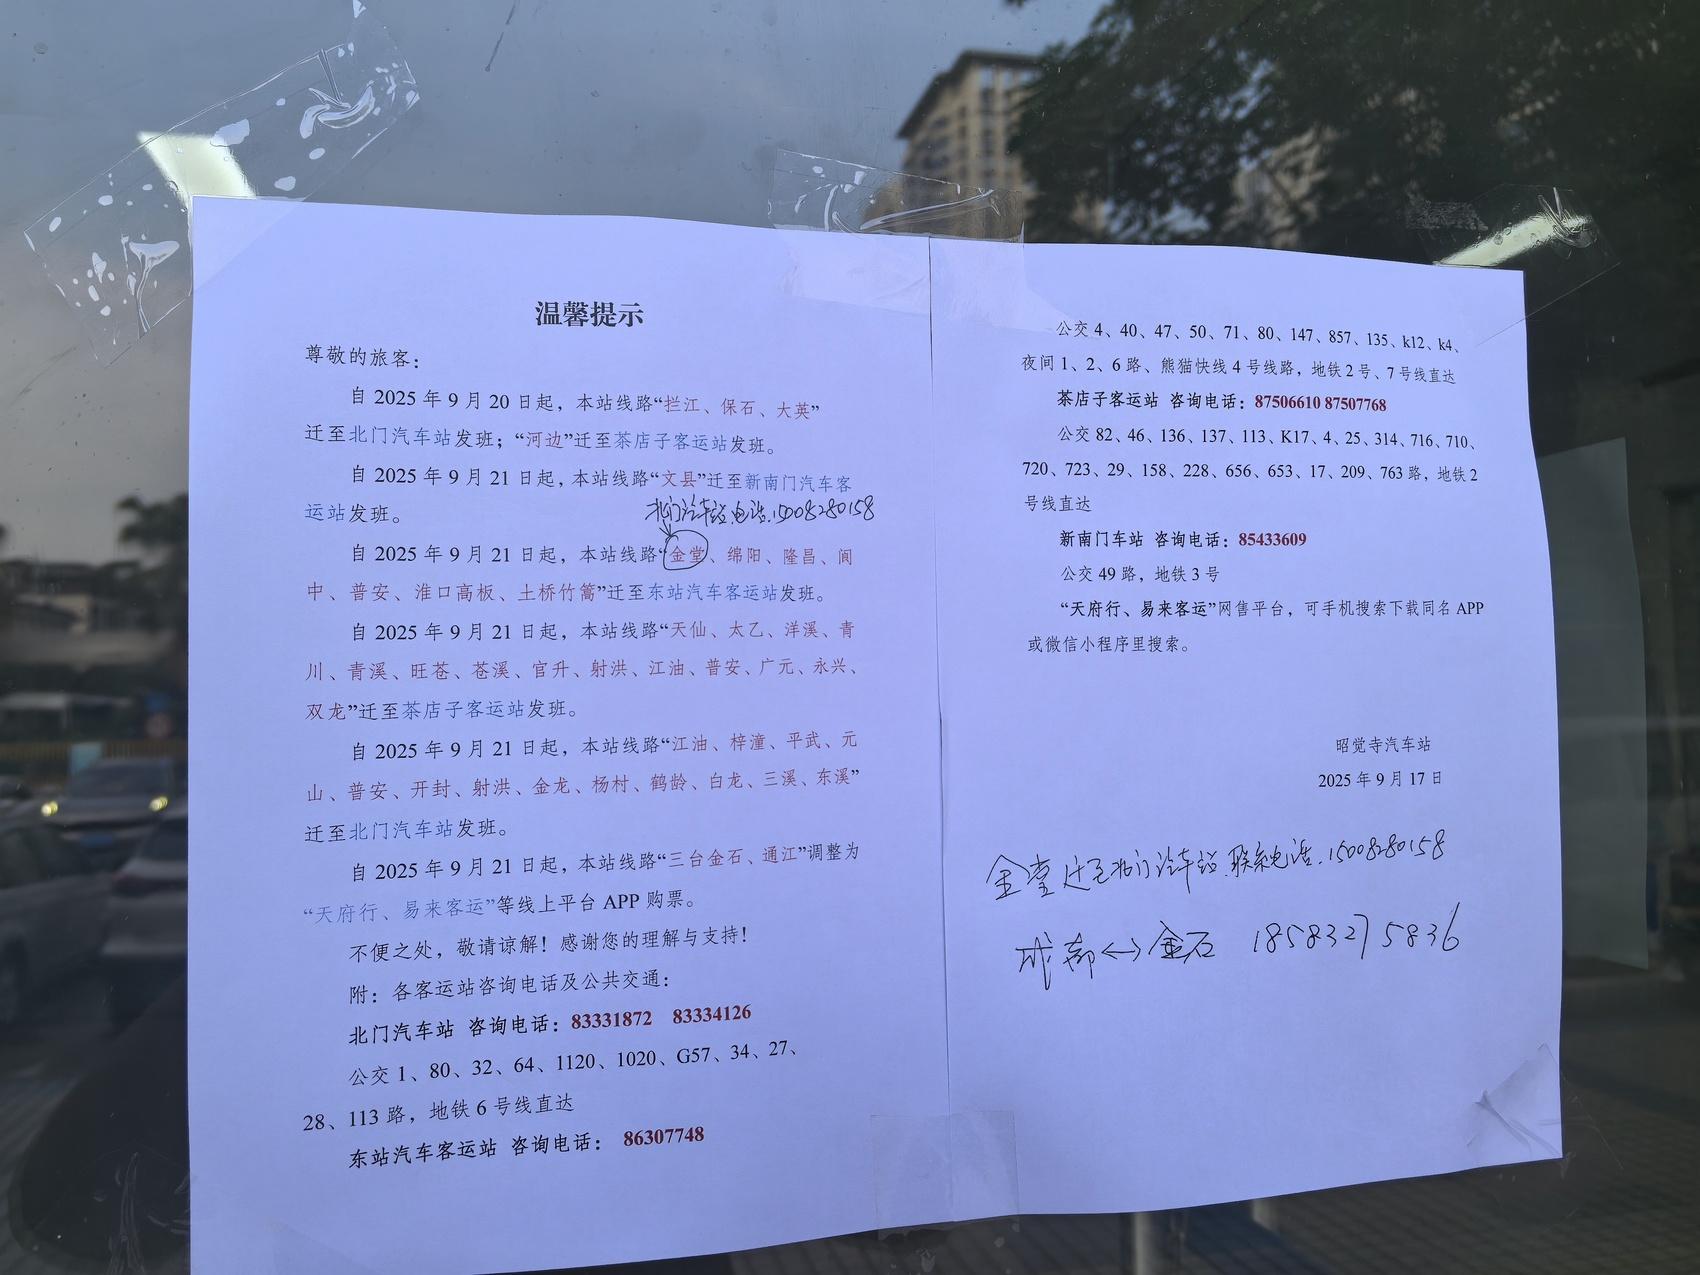 温馨提示
尊敬的旅客：
自 2025 年 9 月 20 日起，本站线路“拦江、保石、大英”
迁至北门汽车站发班；“河边”迁至茶店子客运站发班。
自 2025 年 9 月 21 日起，本站线路“文县”迁至新南门汽车客
运站发班。
北门汽车站电话.15008280158
自 2025 年 9 月 21 日起，本站线路“金堂、绵阳、隆昌、阆
中、普安、淮口高板、土桥竹篙”迁至东站汽车客运站发班。
自 2025 年 9 月 21 日起，本站线路“天仙、太乙、洋溪、青
川、青溪、旺苍、苍溪、官升、射洪、江油、普安、广元、永兴、
双龙”迁至茶店子客运站发班。
自 2025 年 9 月 21 日起，本站线路“江油、梓潼、平武、元
山、普安、开封、射洪、金龙、杨村、鹤龄、白龙、三溪、东溪”
迁至北门汽车站发班。
自 2025 年 9 月 21 日起，本站线路“三台金石、通江”调整为
“天府行、易来客运”等线上平台 APP 购票。
不便之处，敬请谅解！感谢您的理解与支持！
附：各客运站咨询电话及公共交通：
北门汽车站 咨询电话：83331872 83334126
公交 1、80、32、64、1120、1020、G57、34、27、
28、113 路，地铁 6 号线直达
东站汽车客运站 咨询电话： 86307748
公交 4、40、47、50、71、80、147、857、135、k12、k4、
夜间 1、2、6 路、熊猫快线 4 号线路，地铁 2 号、7 号线直达
茶店子客运站 咨询电话：87506610 87507768
公交 82、46、136、137、113、K17、4、25、314、716、710、
720、723、29、158、228、656、653、17、209、763 路，地铁 2
号线直达
新南门车站 咨询电话：85433609
公交 49 路，地铁 3 号
“天府行、易来客运”网售平台，可手机搜索下载同名 APP
或微信小程序里搜索。
昭觉寺汽车站
2025 年 9 月 17 日
金堂迁至北门汽车站.联系电话.15008280158
成都<->金石 18583275836